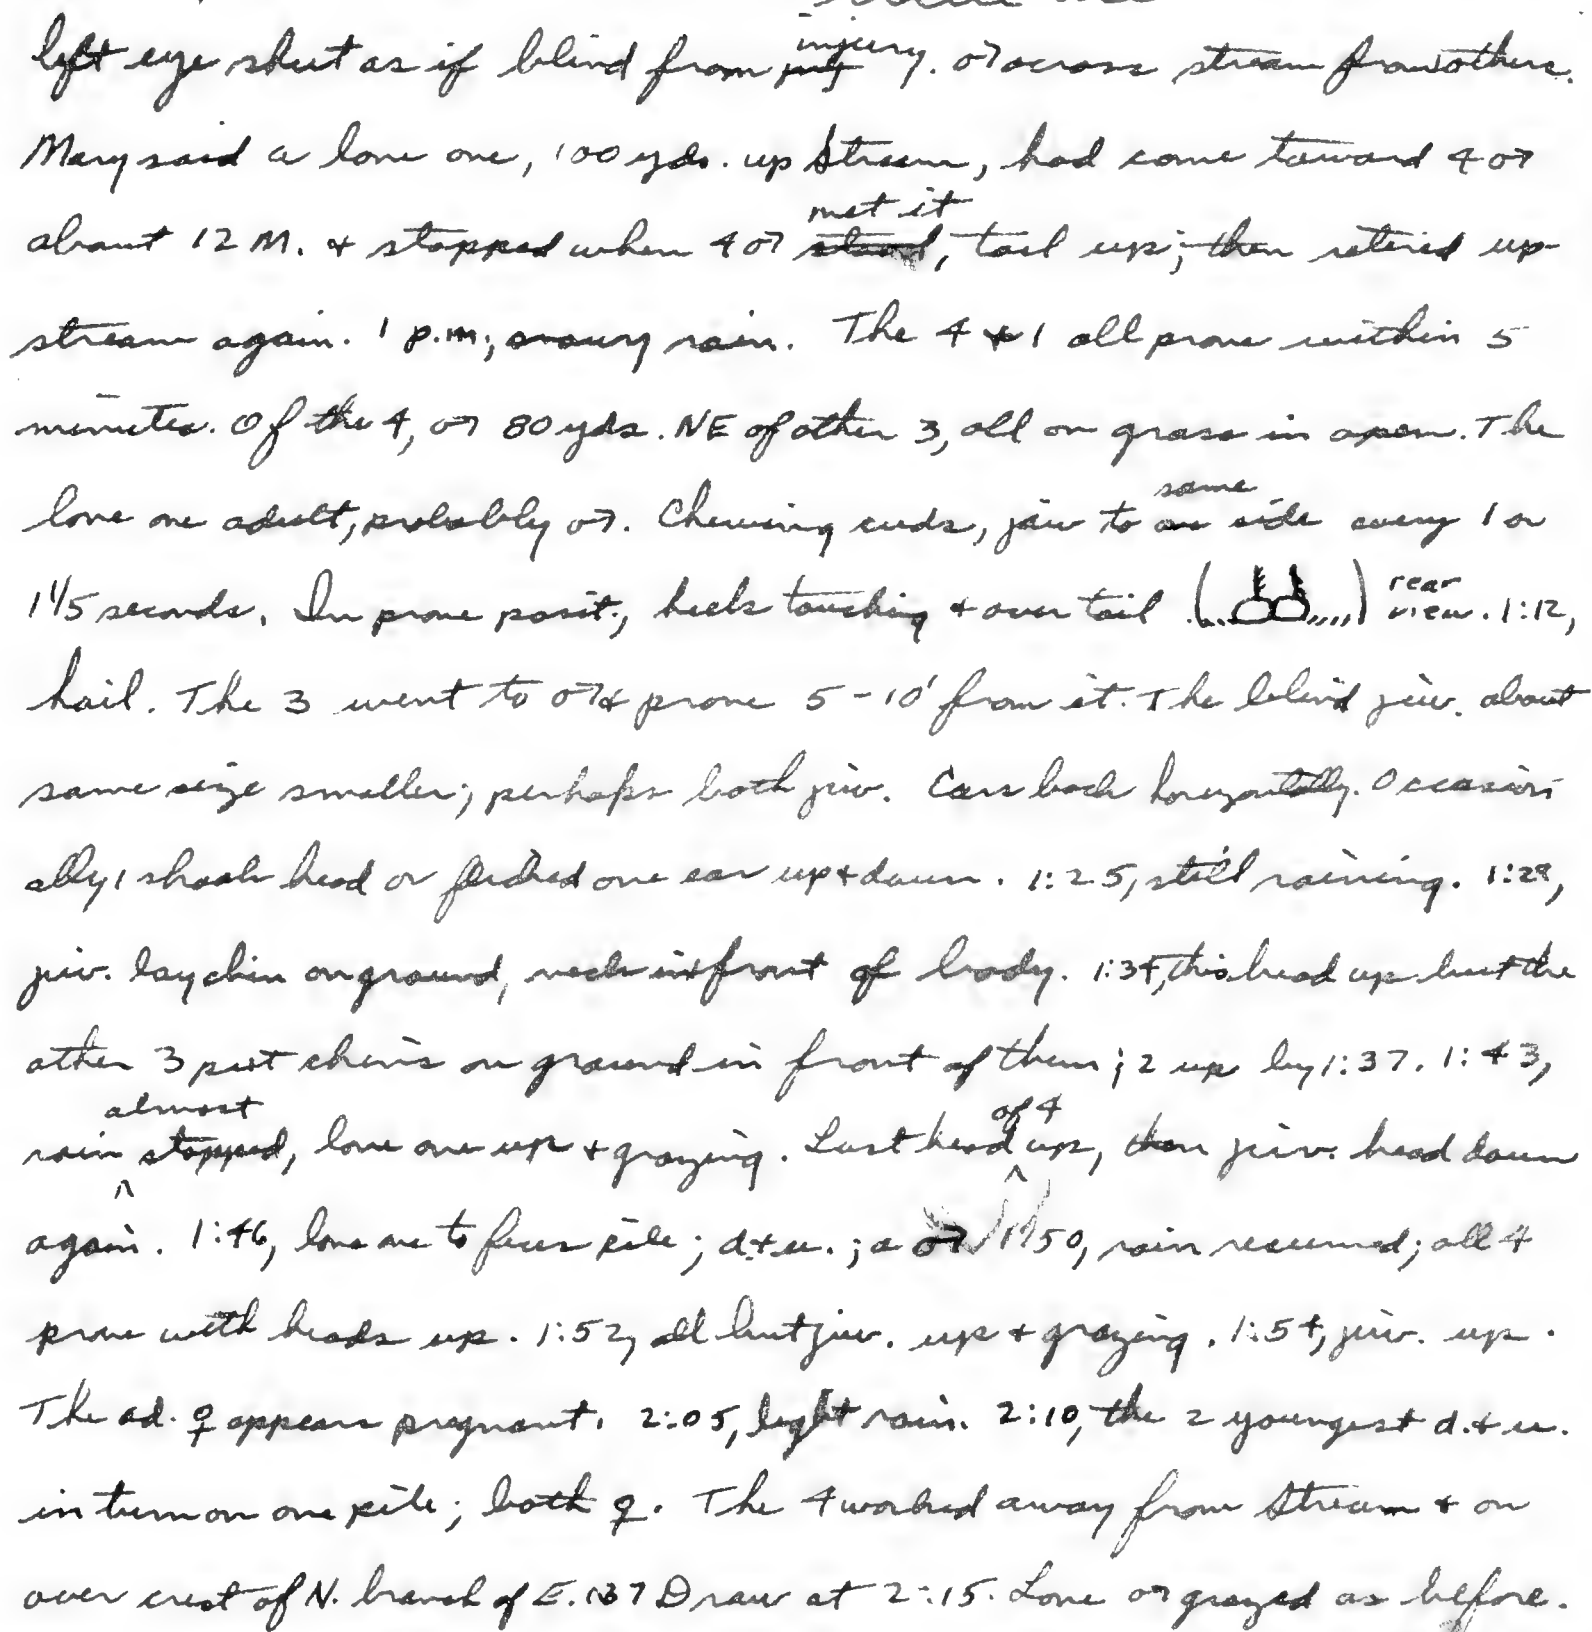 left eye shut as if blind from injury. ♂ across stream from others.
Mary said a lone one, 100 yds. up stream, had come toward 4 ♂
about 12 M. & stopped when 4 ♂ met it, tail up; then retired up
stream again. 1 p.m., rain. The 4 & 1 all prone within 5
minutes. Of the 4, ♂ 80 yds. NE of other 3, all on grass in open. The
lone one adult, probably ♂. Chewing cuds, jaw to same side every 1 or
1 1/5 seconds. In prone posit., heels touching & over tail rear view. 1:12,
hail. The 3 went to ♂ & prone 5-10' from it. The blind juv. about
same size smaller; perhaps both juv. Ears back horizontally. Occasion
ally 1 shook head or flicked one ear up & down. 1:25, still raining. 1:28,
juv. lay chin on ground, neck in front of body. 1:34, this head up but the
other 3 put chins on ground in front of them; 2 up by 1:37. 1:43,
rain almost stopped, lone one up & grazing. Last head of 4 up, then juv. head down
again. 1:46, lone one to feces pile; d. & u.; a ♂ 1:50, rain resumed; all 4
prone with heads up. 1:52, all but juv. up & grazing. 1:54, juv. up.
The ad. ♀ appears pregnant. 2:05, light rain. 2:10, the 2 youngest d. & u.
in turn on one pile; both ♀. The 4 worked away from stream & on
over crest of N. branch of E. 137 Draw at 2:15. Lone ♂ grazed as before.